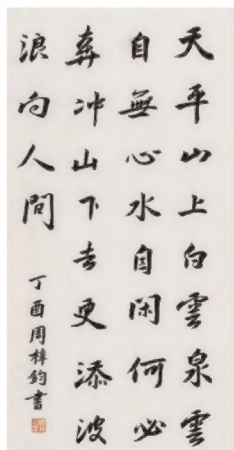 天平山上白雲泉雲
自無心水自閑何必
奔沖山下去更添波
浪向人間
丁酉周梓鈞書